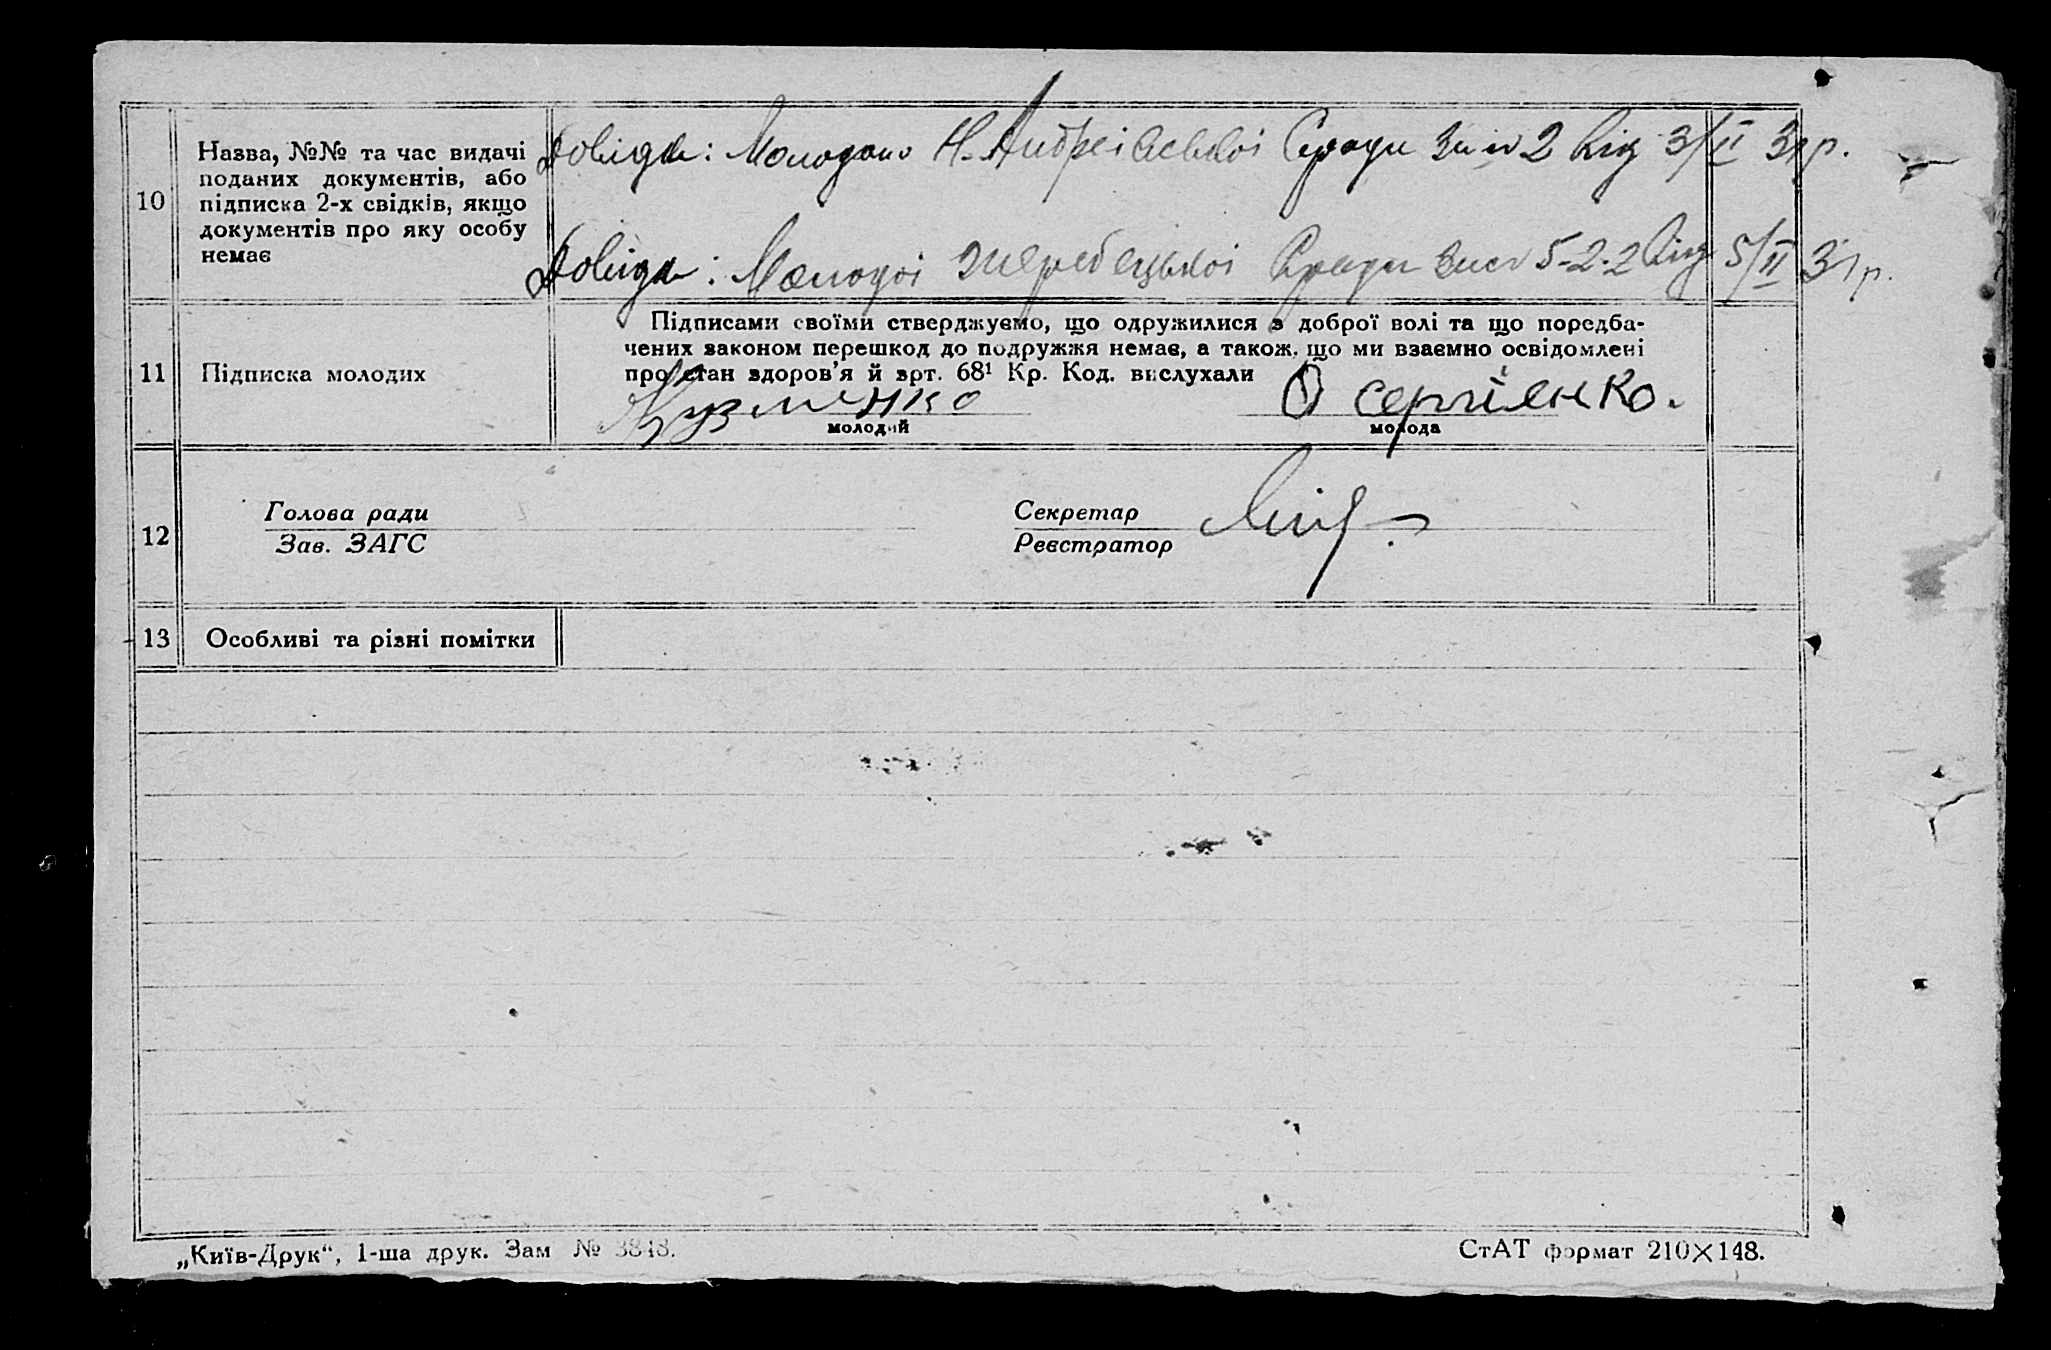 10
Назва, №№ та час видачі
поданих документів, або
підписка 2-х свідків, якщо
документів про яку особу
немає
Довідка: Молодого Н. Андреівської Сради за № 2 від 3/II 31 р.
Довідка: Молодої Жеребецької Сради 5-2.2 від 5/II 31 р.
11
Підписка молодих
Підписами своїми стверджуємо, що одружилися з доброї волі та що поредба-
чених законом перешкод до подружжя немає, а також, що ми взаємно освідомлені
про стан здоров'я й арт. 68¹ Кр. Код. вислухали
Кузменко
О Сергієнко.
молодий
молода
12
Голова ради
Зав. ЗАГС
Секретар
Реєстратор
13
Особливі та різні помітки
„Київ-Друк“, 1-ша друк. Зам № 3848.
СтАТ формат 210×148.